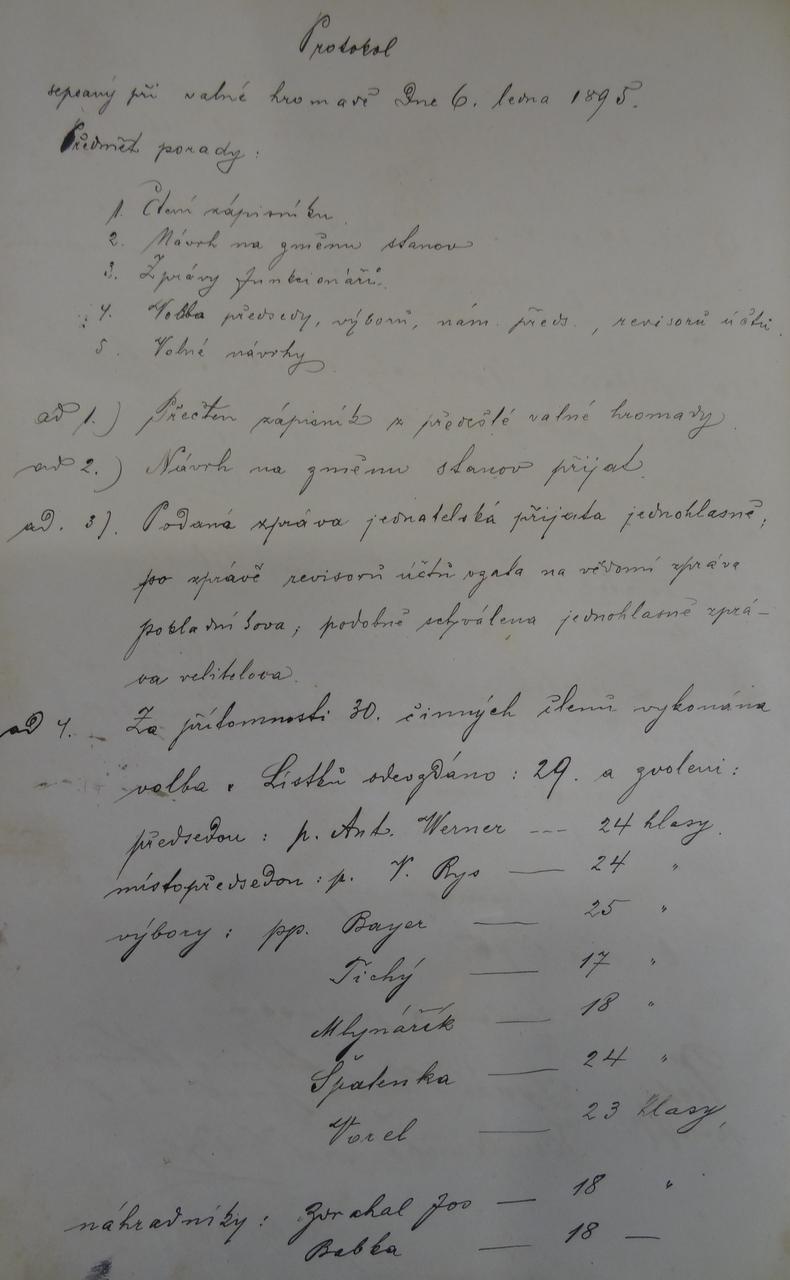 Protokol
sepsaný při valné hromadě Dne 6. ledna 1895.
Předmět porady:
1. Čtení zápisníku
2. Návrh na gměnu stanov
3. Zprávy funkcionářů.
4. Volba předsedy, výborů, nám. předs., revisorů účtů
5. Volné návrhy
ad 1.) Přečten zápisník z předešlé valné hromady
ad 2.) Návrh na gměnu stanov přijat
ad. 3). Podaná zpráva jednatelská přijata jednohlasně,
po zprávě revisorů účtů vgata na vědomí zpráva
pokladníkova; podobně schválena jednohlasně zprá-
va velitelova.
ad 4. Za přítomnosti 30. činných členů vykonána
volba. Lístků odevgdáno: 29. a gvoleni:
předsedou: p. Ant. Werner --- 24 hlasy.
místopředsedou: p. V. Rys — 24 "
výbory: pp. Bayer — 25 "
Tichý — 17 "
Mlynářík — 18 "
Špatenka — 24 "
Vorel — 23 hlasy,
náhradníky: Jos — 18 "
Babka — 18 —